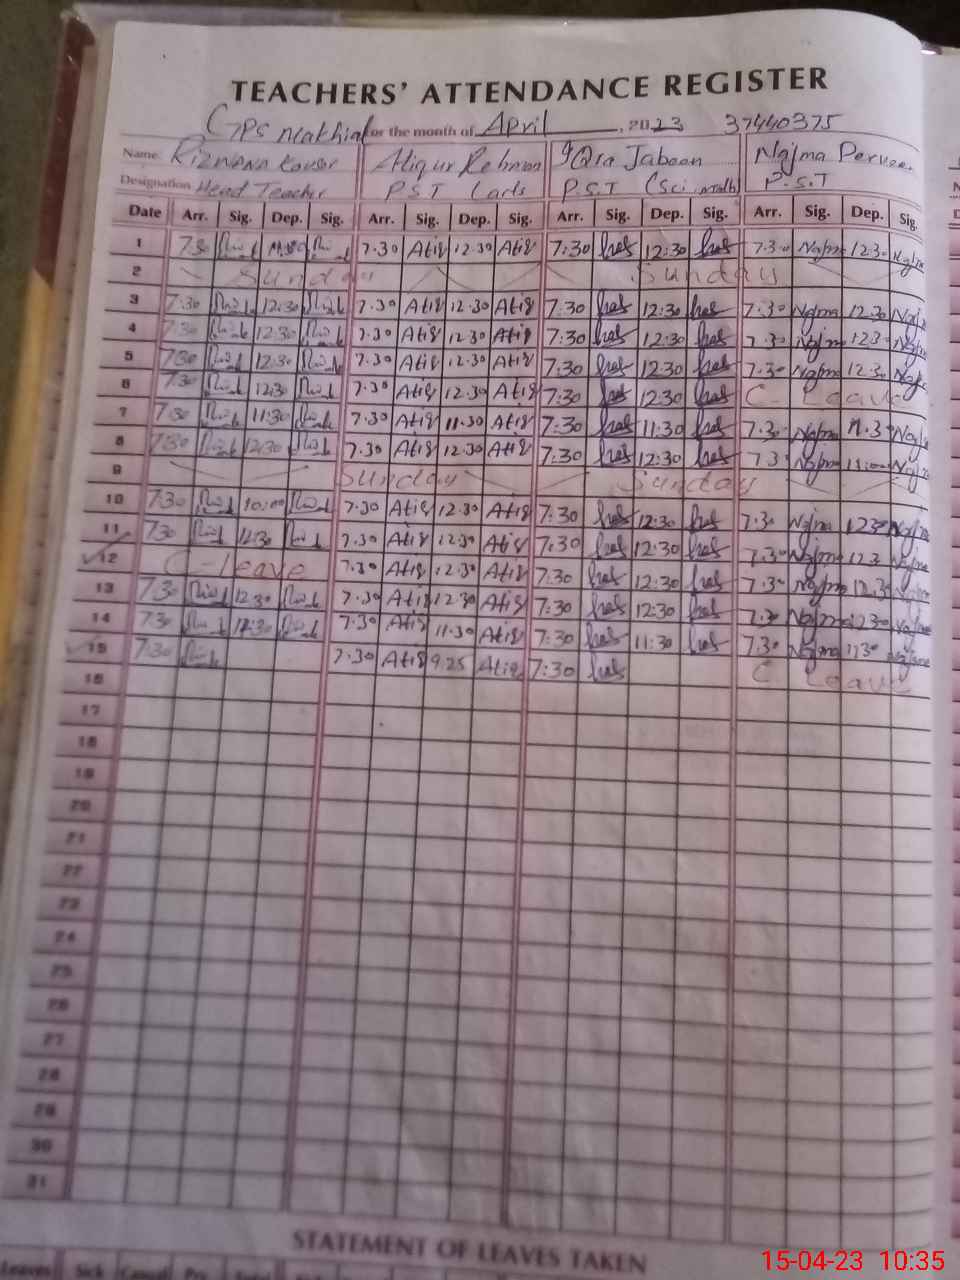 TEACHERS' ATTENDANCE REGISTER
GPS Makhial for the month of April, 2023 37440375
Name. Rizwana Kausar Atiqur Rehman IQra Jabeen Najma Perveen
Designation Head Teacher P S T (arts P.S.T (Sci math) P.S.T
Date Arr. Sig. Dep. Sig. Arr. Sig. Dep. Sig. Arr. Sig. Dep. Sig. Arr. Sig. Dep. Sig.
1 7.30 7.30 Atiq 12.30 Atiq 7:30 12:30 7.30 Najma 12.30 Najma
2 Sunday Sunday
3 7:30 12:30 7.30 Atiq 12.30 Atiq 7:30 12:30 7.30 Najma 12.30
4 7:30 12:30 7.30 Atiq 12.30 Atiq 7:30 12:30 7.30 Najma 12.30
5 7:30 12:30 7.30 Atiq 12.30 Atiq 7:30 12:30 7.30 Najma 12.30
6 7:30 12:30 7.30 Atiq 12.30 Atiq 7:30 12:30 C. Leave
7 7:30 11:30 7.30 Atiq 11.30 Atiq 7:30 11:30 7.30 Najma 11.30
8 7:30 12:30 7.30 Atiq 12.30 Atiq 7:30 12:30 7.30 Najma
9 Sunday Sunday
10 7:30 10:00 7.30 Atiq 12.30 Atiq 7:30 12:30 7.30 Najma 12.30 Najma
11 7:30 12:30 7.30 Atiq 12.30 Atiq 7:30 12:30 7.30 Najma 12.30
12 C-leave 7.30 Atiq 12.30 Atiq 7:30 12:30 7.30 Najma 12.30
13 7:30 12:30 7.30 Atiq 12.30 Atiq 7:30 12:30 7.30 Najma 12.30
14 7:30 7.30 Atiq 11.30 Atiq 7:30 11:30 7.30 Najma 11.30 Najma
15 7:30 7.30 Atiq 9.25 Atiq 7:30 C. Leave
16
17
18
19
20
21
22
23
24
25
26
27
28
29
30
31
STATEMENT OF LEAVES TAKEN
Leaves Sick Casual
15-04-23 10:35